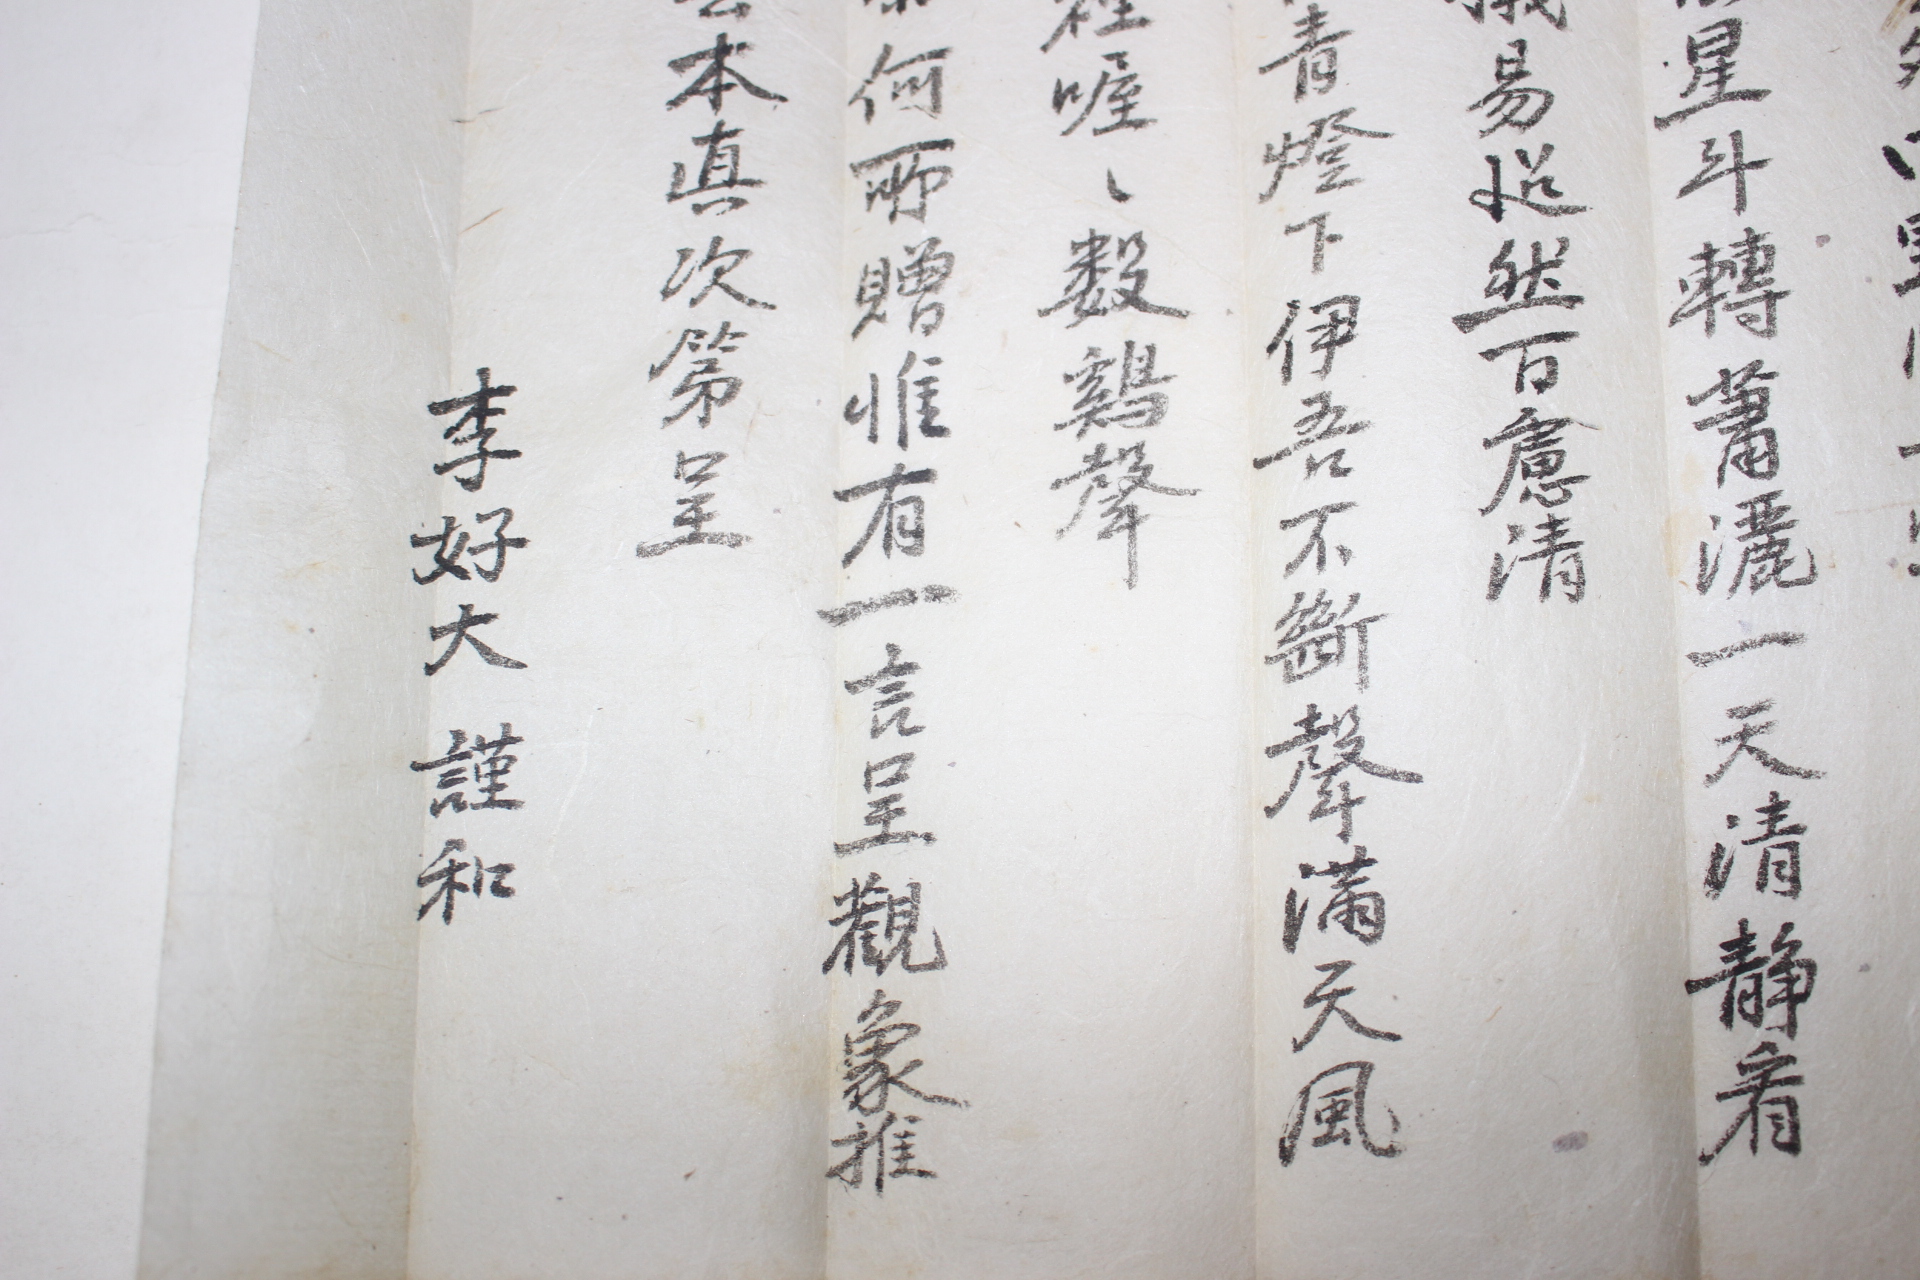 星斗轉蕭灑一天清静看
易悠然百慮清
青燈下伊吾不斷聲滿天風
喔〻数鷄聲
何所贈惟有一言呈觀象推
本真次第呈
李好大 謹和